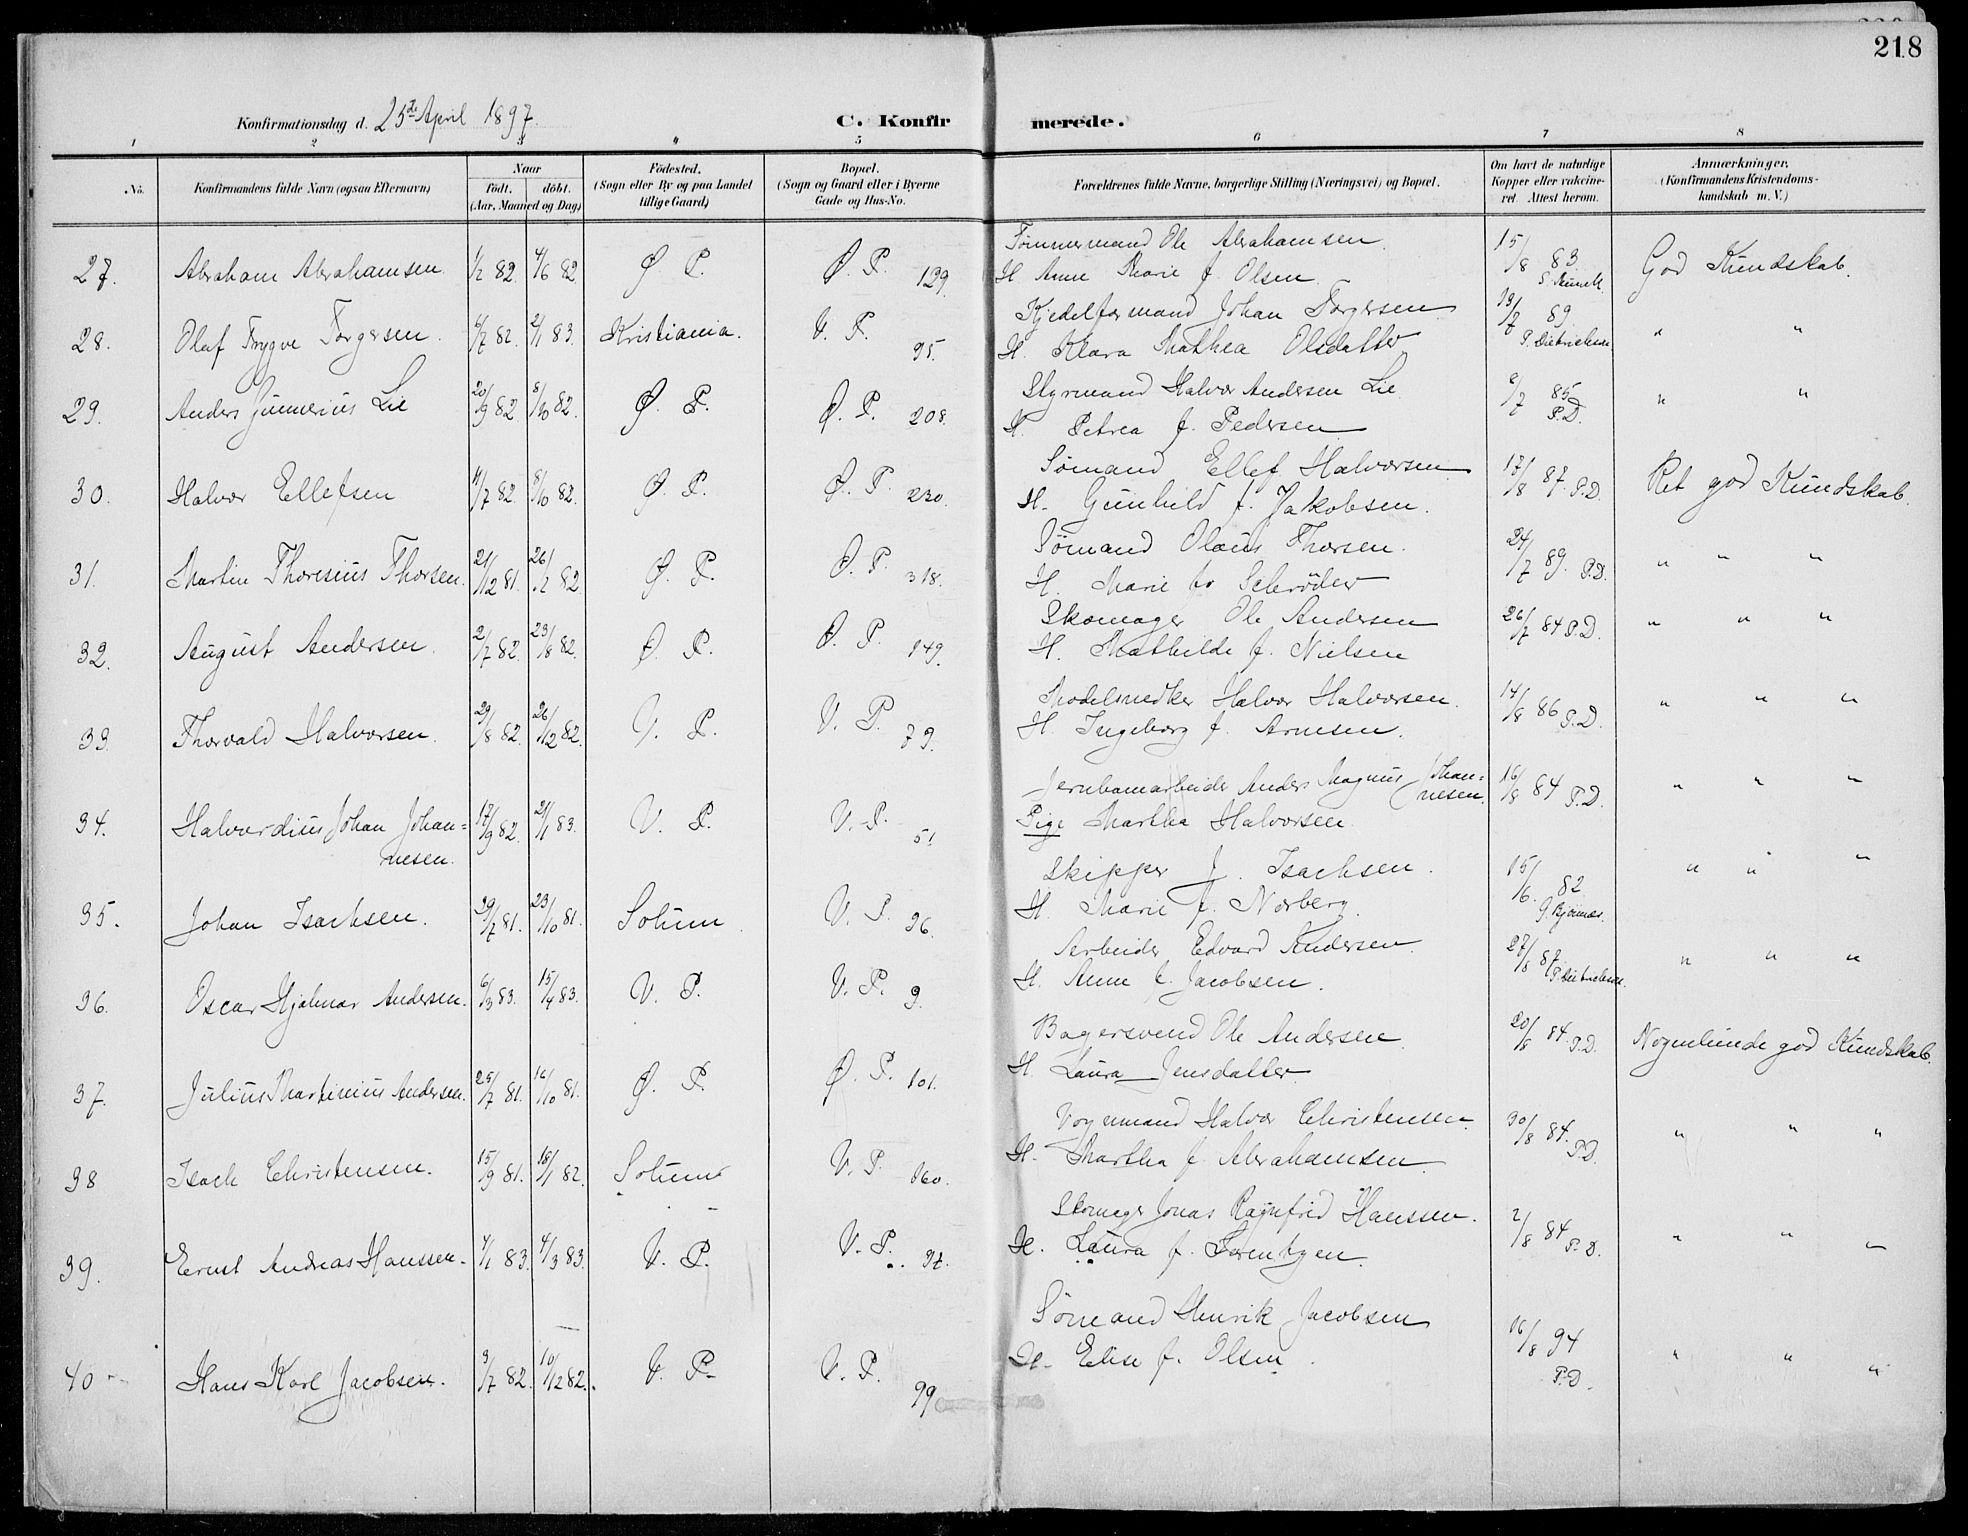 218
Konfirmationsdag d. 25de April 1897.
C. Konfirmerede.
1 2 3 4 5 6 7 8
No.
Konfirmandens fulde Navn (ogsaa Efternavn)
Naar
födt. döbt.
(Aar, Maaned og Dag)
Födested.
(Sogn eller By og paa Landet
tillige Gaard)
Bopæl.
(Sogn og Gaard eller i Byerne
Gade og Hus-No.
Forældrenes fulde Navne, borgerlige Stilling (Næringsvei) og Bopæl.
Om havt de naturlige
Kopper eller vakcine-
ret. Attest herom.
Anmærkninger.
(Konfirmandens Kristendoms-
kundskab m. V.)
Tømmermand Ole Abrahamsen 15/8 83
27. Abraham Abrahamsen 1/2 82. 4/6 82 Ø P. Ø. P. 129. H. Anne Marie f. Olsen God Kundskab.
Kjedelformand Johan Torgersen 19/7 89
28. Olaf Trygve Torgersen. 6/7 82. 2/1 83. Kristiania. V. P. 95. H. Klara Mathea Olsdatter P. Dietrichson " "
Styrmand Halvor Andersen Lie 85
29. Anders Gunnerius Lie 20/9 82 8/10 82. Ø. P. Ø. P. 208. H. Petrea f. Pedersen P.D. " "
Sømand Ellef Halvorsen 17/8 87. P.D.
30. Halvor Ellefsen 11/7 82. 8/10 82. Ø. P. Ø. P. 230. H. Gunhild f. Jakobsen. Ret god Kundskab.
Sømand Olaus Thorsen. 24/7 89. P.D.
31. Martin Thoresius Thorsen. 21/12 81. 26/2 82. Ø. P. Ø. P. 318. H. Marie f. Schrøder " " "
Skomager Ole Andersen 26/7 84 P.D.
32. August Andersen. 2/7 82. 23/8 82. Ø. P. Ø. P. 149. H. Mathilde f. Nielsen " " "
Modelsnedker Halvor Halvorsen. 14/8 86 P.D.
33. Thorvald Halvorsen. 29/8 82. 26/12 82. V. P. V. P. 79. H. Ingeborg f. Arnesen. " " "
Jernbanearbeider Anders Magnus Johan=
nesen. 16/8 84 P.D.
34. Halvardius Johan Johan=
nesen. 17/9 82. 21/1 83. V. P. V. P. 51. Pige Martha Halvorsen " " "
Skipper J. Isachsen. 15/6. 82
35. Johan Isachsen. 29/7 81. 23/10 81. Solum V. P. 36. H. Marie f. Norberg. " " "
Arbeider Edvard Andersen 27/8 87
36. Oscar Hjalmar Andersen. 6/3 83. 15/4 83. V. P. V. P. 9. H. Anne f. Jacobsen. P. Dietrichson. " " "
Bagersvend Ole Andersen. 20/8 84. P.D.
37. Julius Martinius Andersen. 25/7 81. 16/10 81. Ø. P. Ø. P. 101. H. Laura Jensdatter Nogenlunde god Kundskab.
Vognmand Halvor Christensen. 30/8 84. P.D.
38 Isach Christensen. 15/9 81. 18/1 82. Solum V. P. 160. H. Martha f. Abrahamsen " " "
Skomager Jonas Ragnfrid Hanssen. 2/8 84 P.D.
39. Ernst Andreas Hanssen. 4/1 83. 4/3 83. V. P. V. P. 37. H. Laura f. " " "
Sømand Henrik Jacobsen 16/8 94
40 Hans Karl Jacobsen. 9/7 82. 10/12 82. V. P. V. P. 99 H. Elise f. Olsen. P.D. " " "